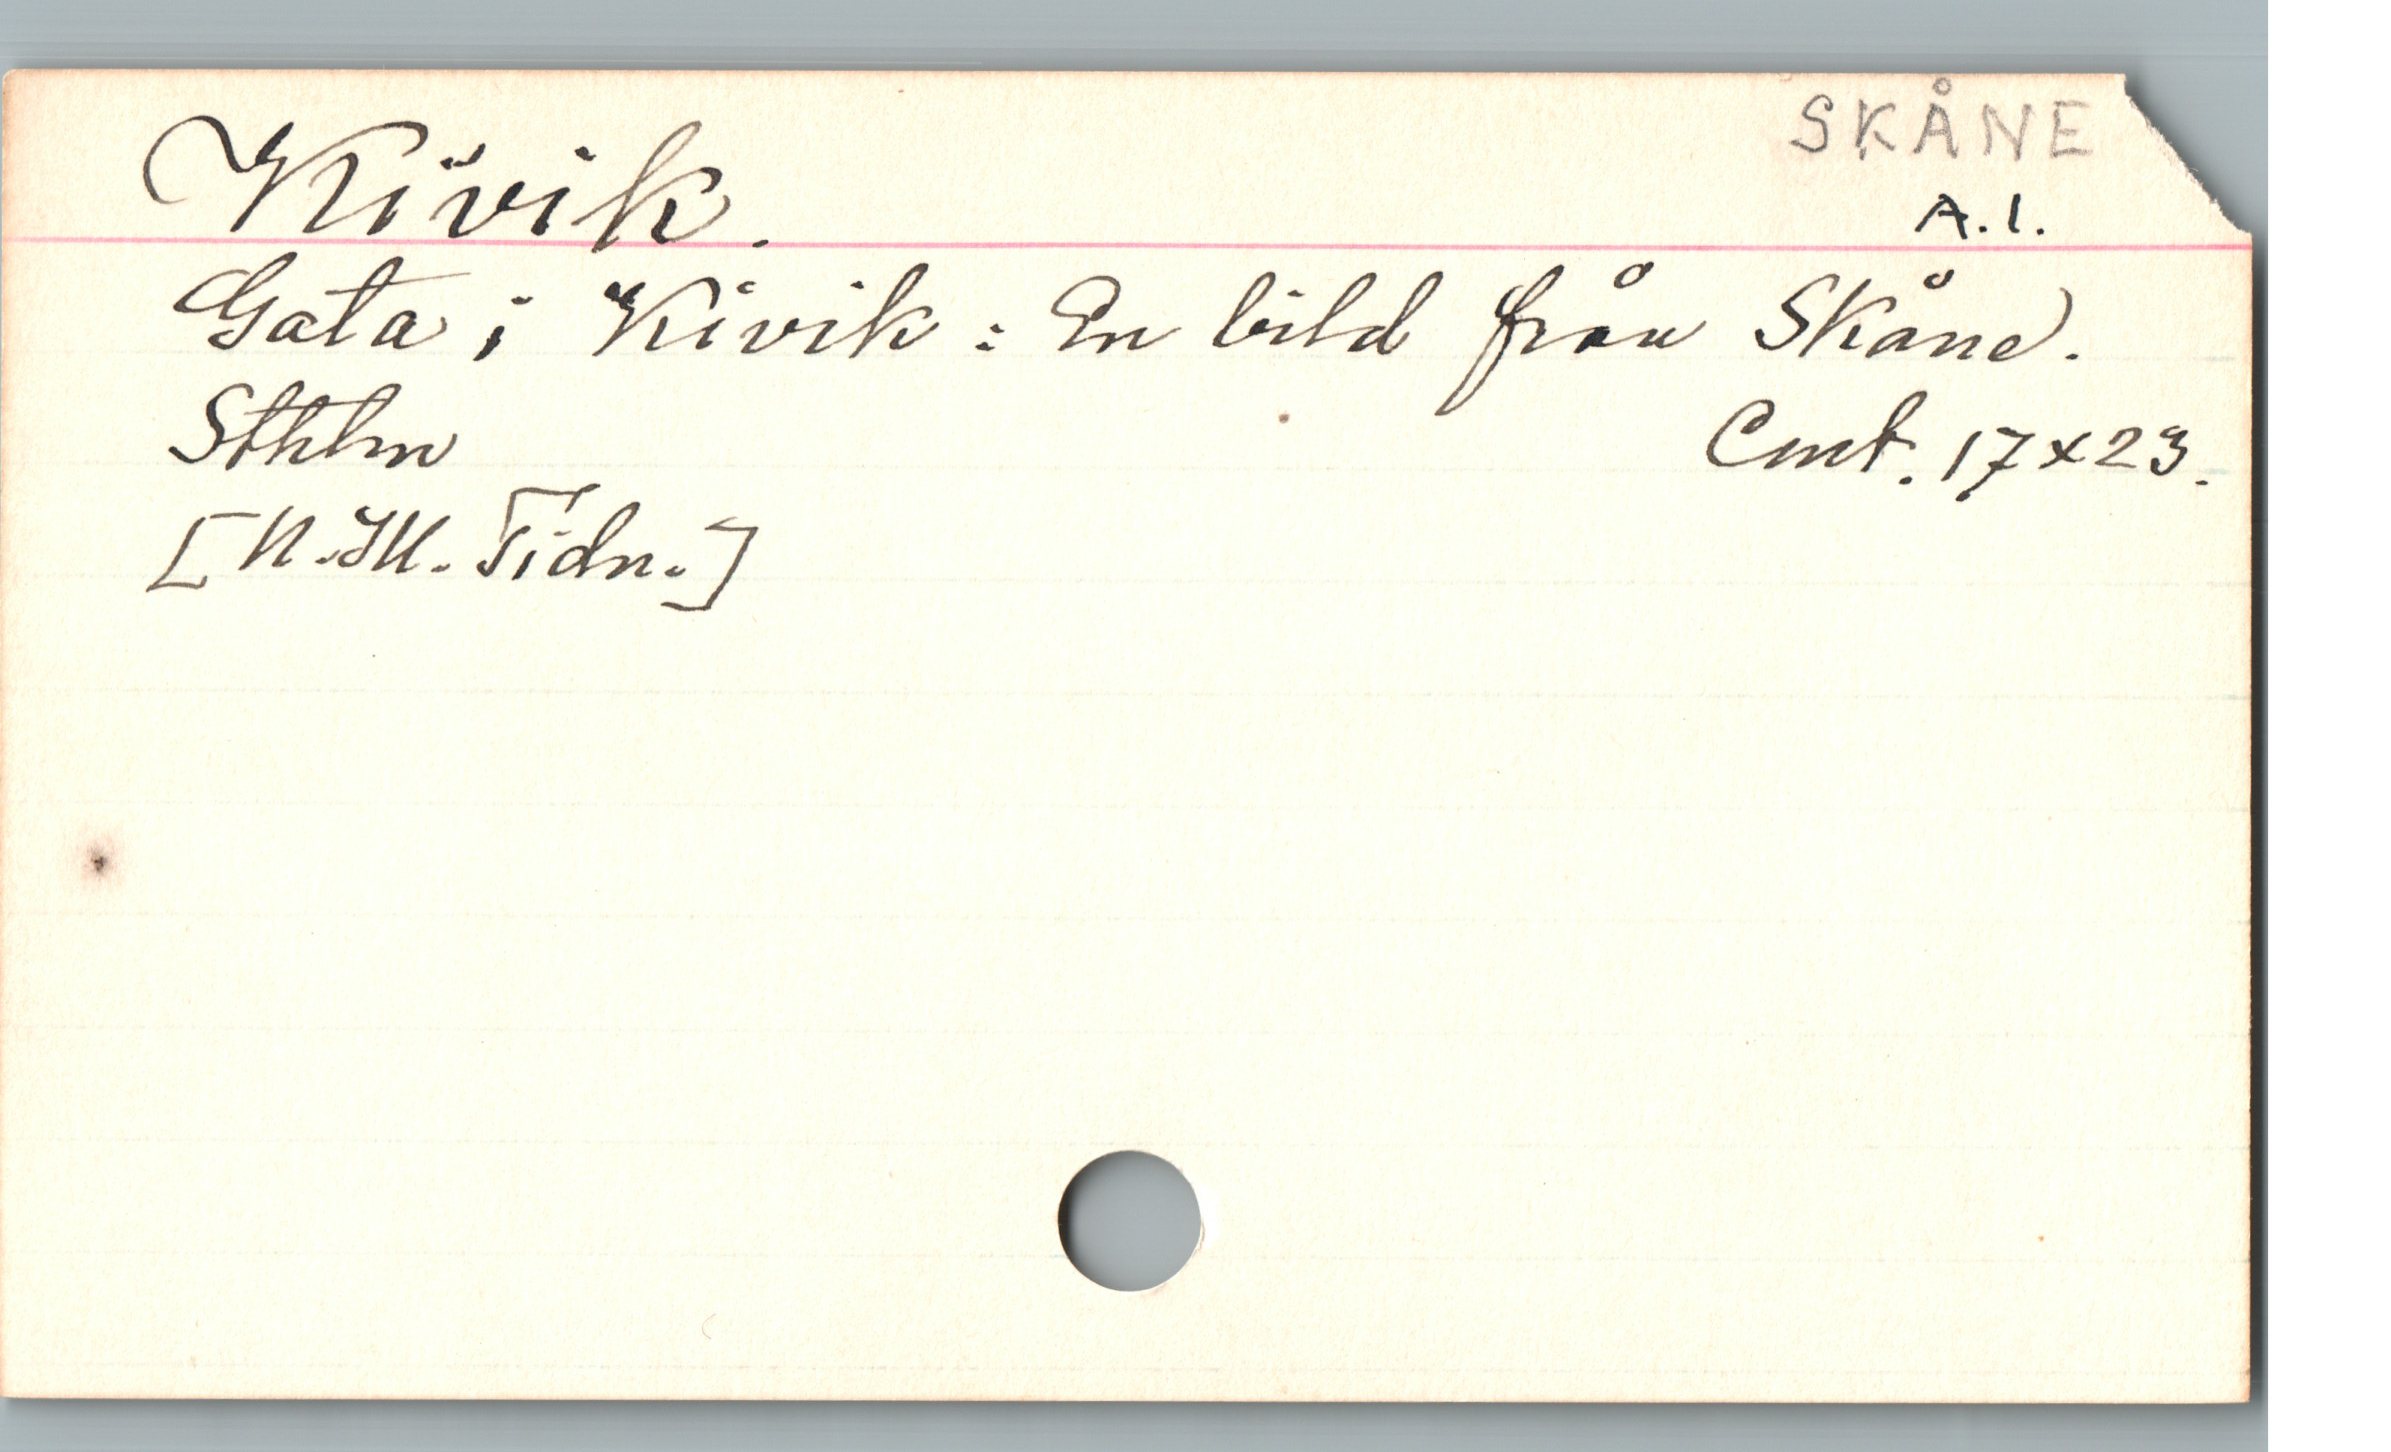 SKÅNE
Kivik.
A.1.
Gata i Kivik : En bild från Skåne.
Sthlm
Cmt. 17x23.
[N.Ill. Tidn.]